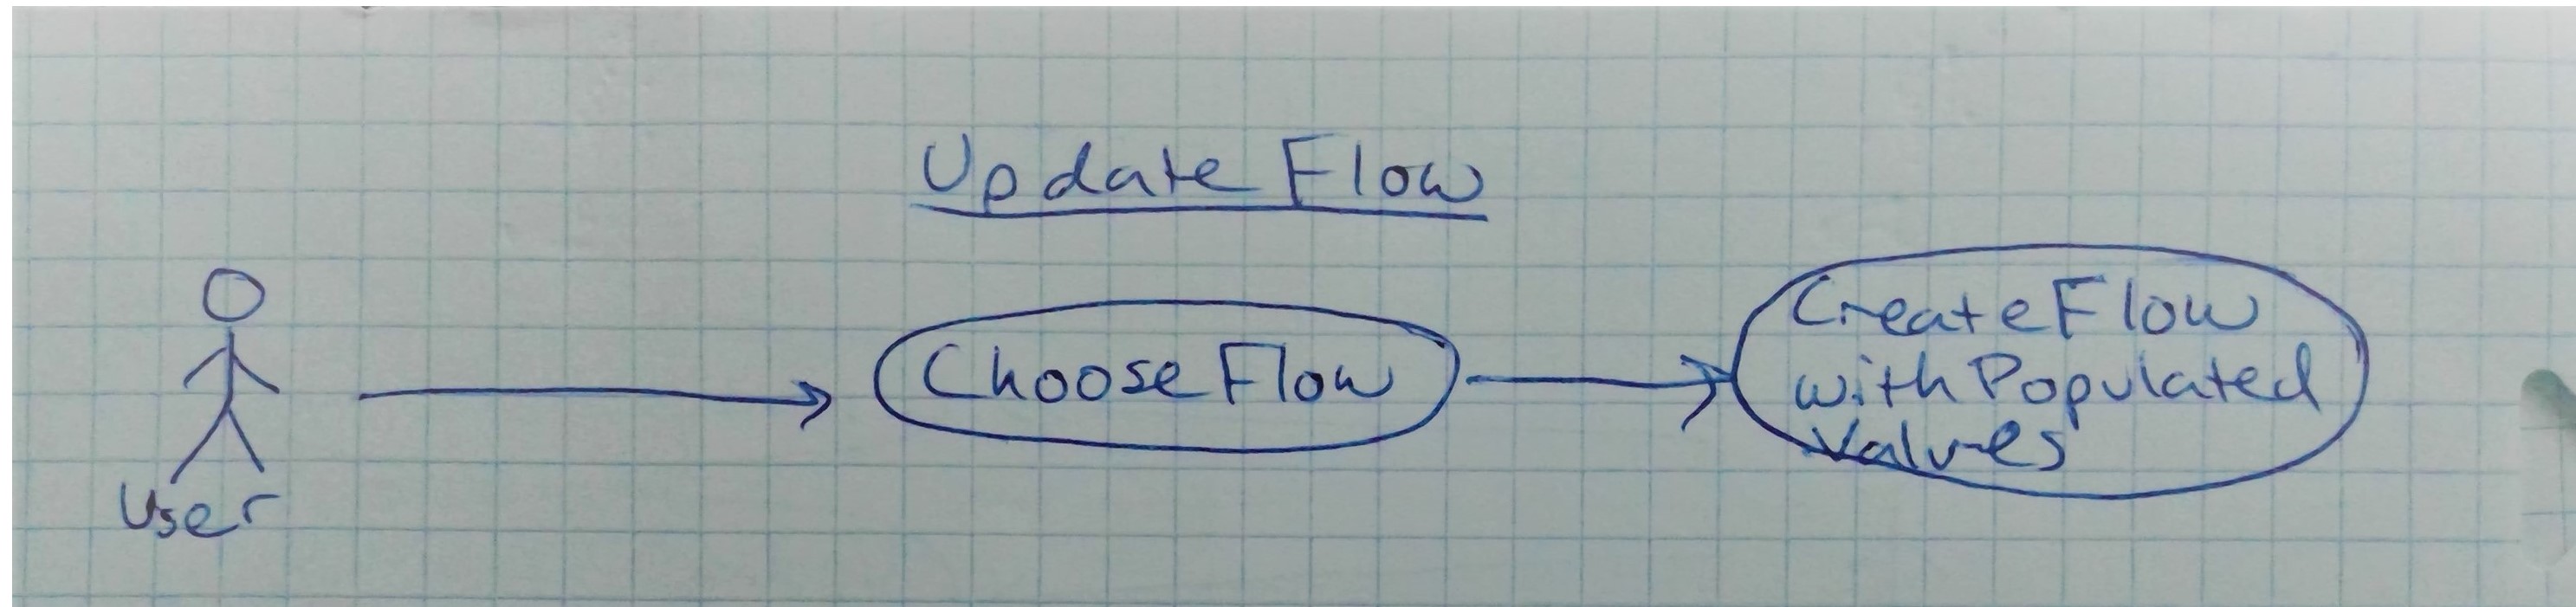 Update Flow
Choose Flow
Create Flow
with Populated
Values
User